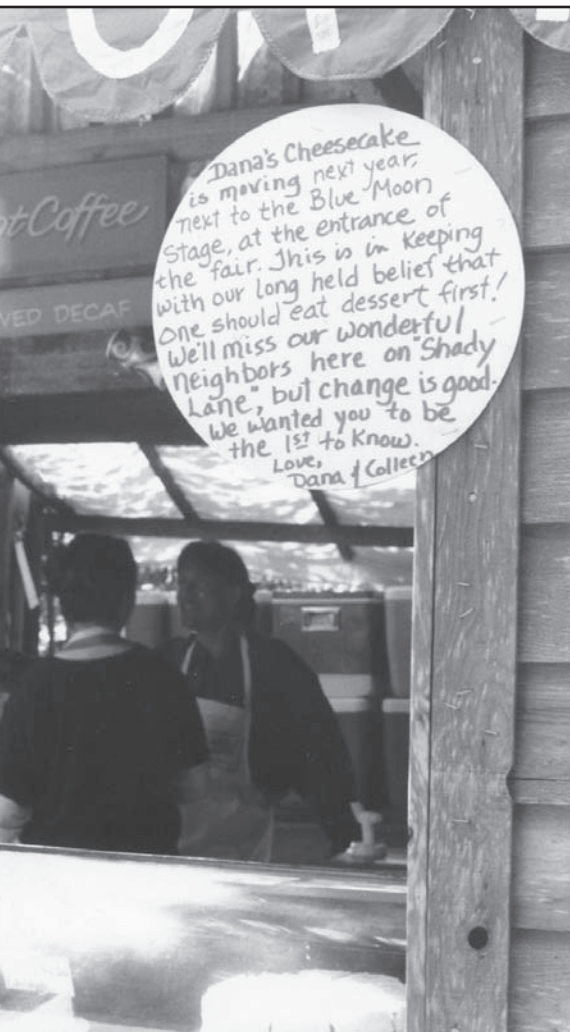 Dana's Cheesecake
is moving next year,
next to the Blue Moon
Stage, at the entrance of
the fair. This is in keeping
with our long held belief that
one should eat dessert first!
We'll miss our wonderful
neighbors here on "Shady
Lane", but change is good.
We wanted you to be
the 1st to know.
Love,
Dana & Colleen
otCoffee
VED DECAF